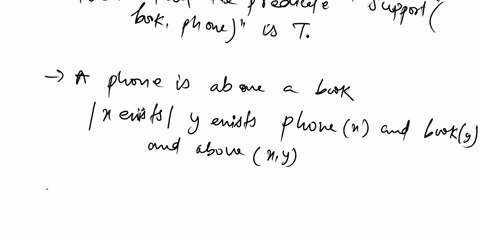 the predicate " support(
book, phone)" is T.
→ A phone is above a book
|x exists| y exists phone(x) and book(y)
and above (x,y)